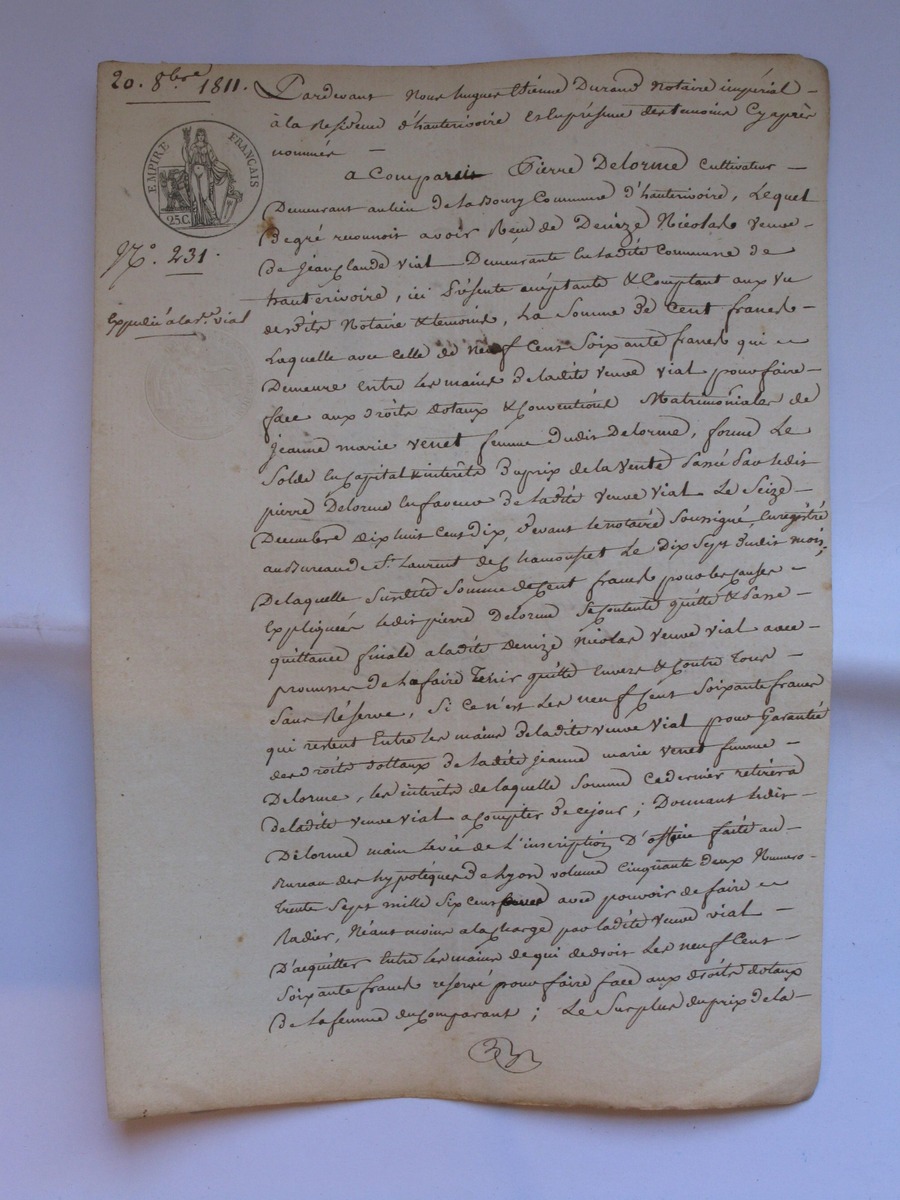 20. 8bre 1811.
EMPIRE FRANÇAIS
25 C.
N.º 231.
Expédié à la d.e vial
Pardevant Nous hugues Etienne Durand Notaire impérial
à la Residence d'hauterivoire Et En présence des temoins Cy après
nommés
a Comparu Pierre Delorme Cultivateur
Demeurant au lieu de La Bourg Commune d'hauterivoire, Lequel
de gré reconnoit avoir Reçu de Denize Nicolas veuve
de jean Claude vial Demeurante En ladite Commune de
hauterivoire, ici Présente acceptante & Comptant aux vu
desdits Notaire & temoins, La Somme de Cent francs
Laquelle avec celle de neuf Cent Soixante francs qui
Demeure Entre les mains de ladite veuve vial pour faire
face aux droits dotaux & Conventions Matrimoniales de
jeanne marie venet femme dudit Delorme, forme Le
Solde En Capital & interêts du prix de la vente Passée Par ledit
pierre Delorme En faveur de ladite veuve vial Le Seize
Decembre Dix huit Cent Dix, devant le notaire Soussigné, Enregistré
au Bureau de St. Laurent de Chamousset Le Dix Sept dudit mois,
De laquelle Susdite Somme de Cent francs pour les Causes
Expliquées ledit pierre Delorme Se Contente quitte & Passe
quittance finale a ladite Denize Nicolas veuve vial avec
promesse de La faire Tenir quitte Envers & Contre Tous
Sans Réserve, Si Ce n'est Les neuf Cent Soixante francs
qui restent Entre les mains de ladite veuve vial pour Garantie
des droits dottaux de ladite jeanne marie venet femme
Delorme, les interêts de laquelle Somme Ce dernier retirera
de ladite veuve vial a Compter de ce jour; Donnant ledit
Delorme main levée de L'inscription D'office faite au
Bureau des hypotéques de Lyon volume Cinquante deux Numero
Trente Sept mille Six cent avec pouvoir de faire
Radier, Néant moins a la Charge par ladite veuve vial
D'acquitter Entre les mains de qui de droit Les neuf Cent
Soixante francs reservé pour faire face aux droits dotaux
de la femme du Comparant; Le Surplus du prix de la